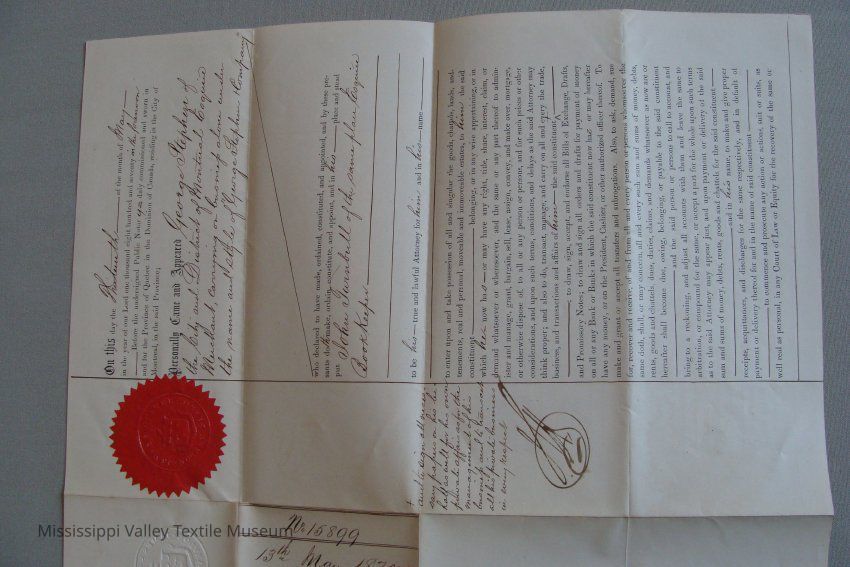 On this day the Thirteenth of the month of May
in the year of our Lord one thousand eight hundred and seventy in the forenoon
Before the undersigned Public Notary duly commissioned and sworn in
and for the Province of Quebec in the Dominion of Canada, residing in the City of
Montreal, in the said Province;
Personally Came and Appeared George Stephen of
the City and District of Montreal Esquire
Merchant, carrying on business alone under
the name and style of "George Stephen & Company"
who declared to have made, ordained, constituted, and appointed, and by these pre-
sents doth make, ordain, constitute, and appoint, and in his place and stead
put John Turnbull of the same place Esquire
Book Keeper
to be his true and lawful Attorney for him and in his name
to enter upon and take possession of all and singular the goods, chattels, lands, and
tenements, real and personal, moveable and immoveable estates, to him the said
constituent belonging, or in any-wise appertaining, or in
which he now has or may have any right, title, share, interest, claim, or
demand whatsoever or wheresoever, and the same or any part thereof to admin-
ister and manage, grant, bargain, sell, lease, assign, convey, and make over, mortgage,
or otherwise dispose of, to all or any person or persons, and for such prices or other
considerations, and upon such terms, conditions, and delays as the said Attorney may
think proper; and also to do, transact, manage, and carry on all and every the trade,
business, and transactions and affairs of him the said constituent
to draw, sign, accept, and endorse all Bills of Exchange, Drafts,
and Promissory Notes; to draw and sign all orders and drafts for payment of money
on all or any Bank or Banks in which the said constituent now has or may hereafter
have any money, or on the President, Cashier, or other authorized officer thereof. To
make and grant or accept all transfers and subrogations. Also, to ask, demand, sue
for, recover, and receive, of and from all and every person or persons whomsoever the
same doth, shall or may concern, all and every such sum and sums of money, debts,
rents, goods and chattels, dues, duties, claims, and demands whatsoever as now are or
hereafter shall become due, owing, belonging, or payable to the said constituent
and the said person or persons to call to account, and
being to a reckoning, and adjust all accounts with them and leave the same to
arbitration, or compound for the same, or accept a part for the whole upon such terms
as to the said Attorney may appear just, and upon payment or delivery of the said
sum and sums of money, debts, rents, goods and chattels for the said constituent
and in his name to make and give proper
receipts, acquittances, and discharges for the same respectively, and in default of
payment or delivery thereof for and in the name of said constituent
to commence and prosecute any action or actions, suit or suits, as
well real as personal, in any Court of Law or Equity for the recovery of the same or
private affairs as for the
management of his
business and to transact
all his private business
in every respect
No 15899
13th May 1870
Mississippi Valley Textile Museum